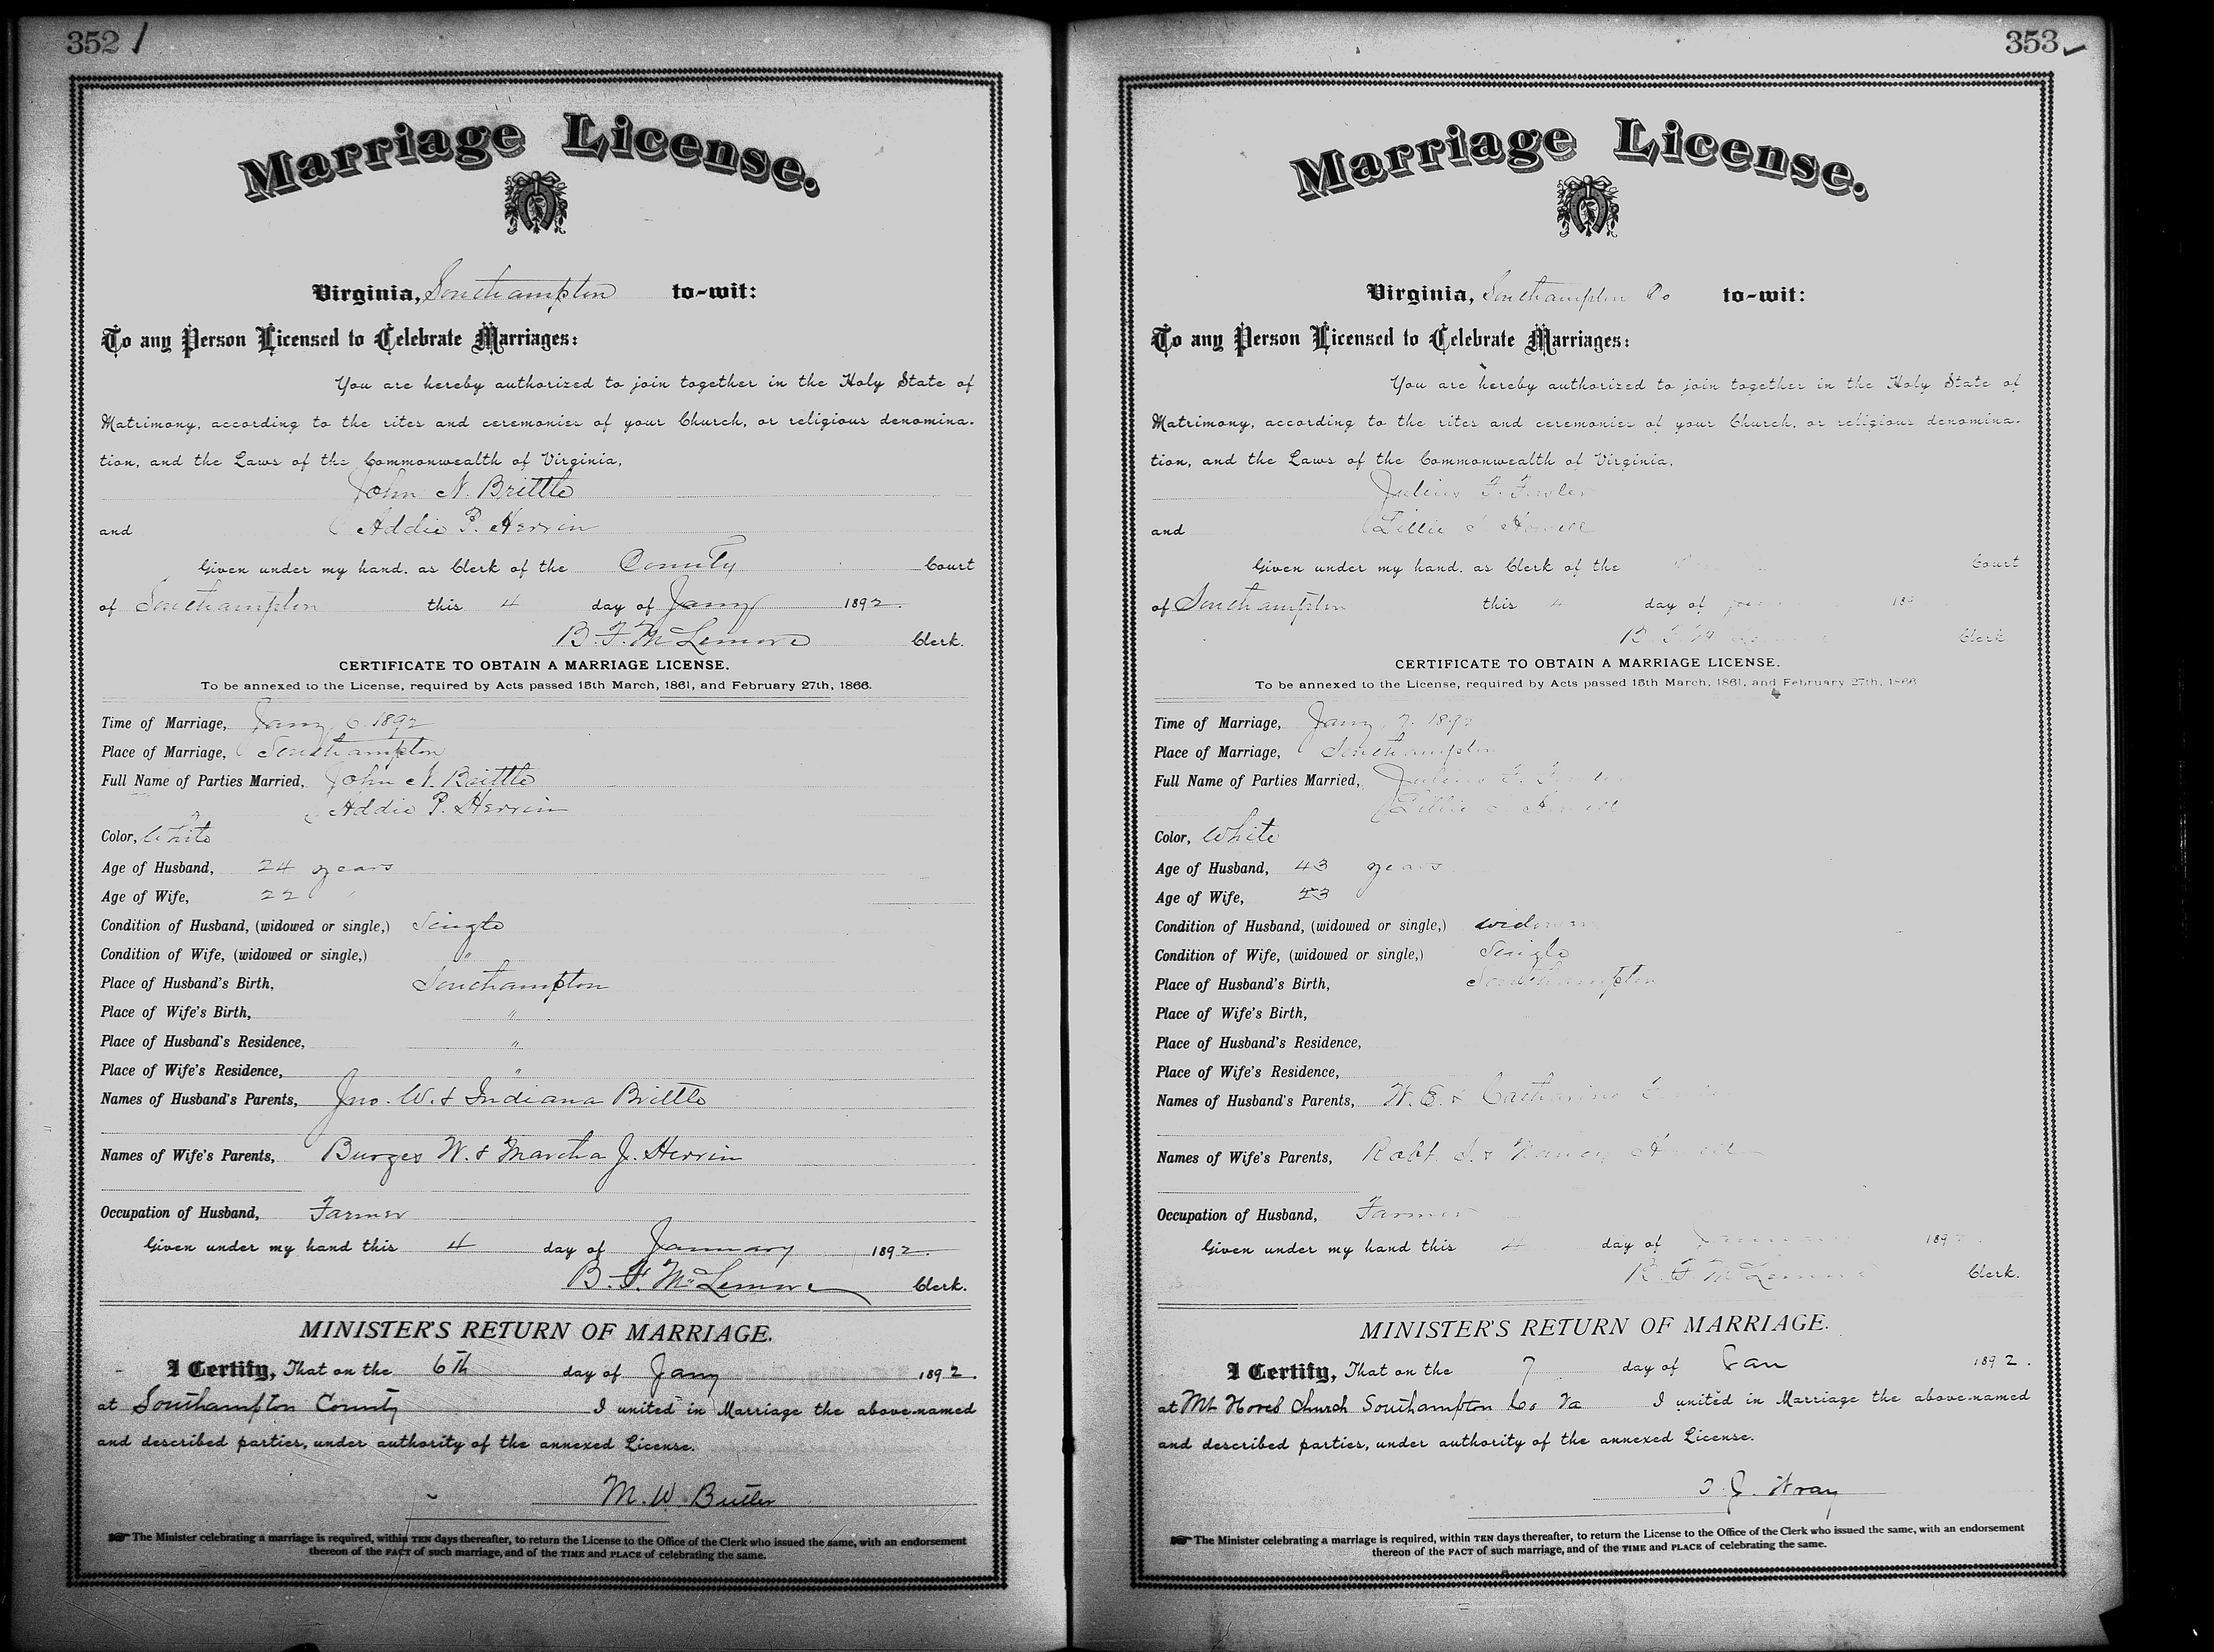 352
Marriage License.
Virginia, Southampton to-wit:
To any Person Licensed to Celebrate Marriages:
You are hereby authorized to join together in the Holy State of
Matrimony, according to the rites and ceremonies of your Church, or religious denomina-
tion, and the Laws of the Commonwealth of Virginia,
John N. Brittle
and Addie P. Herrin
Given under my hand, as Clerk of the County Court
of Southampton this 4 day of Jany 1892.
B. F. McLemore Clerk.
CERTIFICATE TO OBTAIN A MARRIAGE LICENSE.
To be annexed to the License, required by Acts passed 15th March, 1861, and February 27th, 1866.
Time of Marriage, Jany 6 1892
Place of Marriage, Southampton
Full Name of Parties Married, John N. Brittle
Addie P. Herrin
Color, White
Age of Husband, 24 years
Age of Wife, 22 "
Condition of Husband, (widowed or single,) Single
Condition of Wife, (widowed or single,) "
Place of Husband's Birth, Southampton
Place of Wife's Birth, "
Place of Husband's Residence, "
Place of Wife's Residence, "
Names of Husband's Parents, Jno. W. & Indiana Brittle
Names of Wife's Parents, Burges W. & Martha J. Herrin
Occupation of Husband, Farmer
Given under my hand this 4 day of January 1892.
B. F. McLemore Clerk.
MINISTER'S RETURN OF MARRIAGE.
I Certify, That on the 6th day of Jany 1892.
at Southampton County I united in Marriage the above-named
and described parties, under authority of the annexed License.
M. W. Butler
The Minister celebrating a marriage is required, within TEN days thereafter, to return the License to the Office of the Clerk who issued the same, with an endorsement
thereon of the FACT of such marriage, and of the TIME and PLACE of celebrating the same.
353
Marriage License.
Virginia, Southampton Co to-wit:
To any Person Licensed to Celebrate Marriages:
You are hereby authorized to join together in the Holy State of
Matrimony, according to the rites and ceremonies of your Church, or religious denomina-
tion, and the Laws of the Commonwealth of Virginia,
Julius F.
and Lillie Howell
Given under my hand, as Clerk of the Court
of Southampton this 4 day of 189
B. F. M Clerk.
CERTIFICATE TO OBTAIN A MARRIAGE LICENSE.
To be annexed to the License, required by Acts passed 15th March, 1861, and February 27th, 1866
Time of Marriage, Jany 7. 1892
Place of Marriage, Southampton
Full Name of Parties Married, Julius F.
Lillie Howell
Color, White
Age of Husband, 43 years
Age of Wife,
Condition of Husband, (widowed or single,)
Condition of Wife, (widowed or single,) Single
Place of Husband's Birth, Southampton
Place of Wife's Birth,
Place of Husband's Residence,
Place of Wife's Residence,
Names of Husband's Parents, W. E. & Catharine
Names of Wife's Parents, Robt. S. & Nancy Howell
Occupation of Husband, Farmer
Given under my hand this 4 day of January 189
B F McLemore Clerk.
MINISTER'S RETURN OF MARRIAGE.
I Certify, That on the 7 day of Jan 1892.
at Mt Horeb Church Southampton Co Va I united in Marriage the above-named
and described parties, under authority of the annexed License.
J. Wray
The Minister celebrating a marriage is required, within TEN days thereafter, to return the License to the Office of the Clerk who issued the same, with an endorsement
thereon of the FACT of such marriage, and of the TIME and PLACE of celebrating the same.